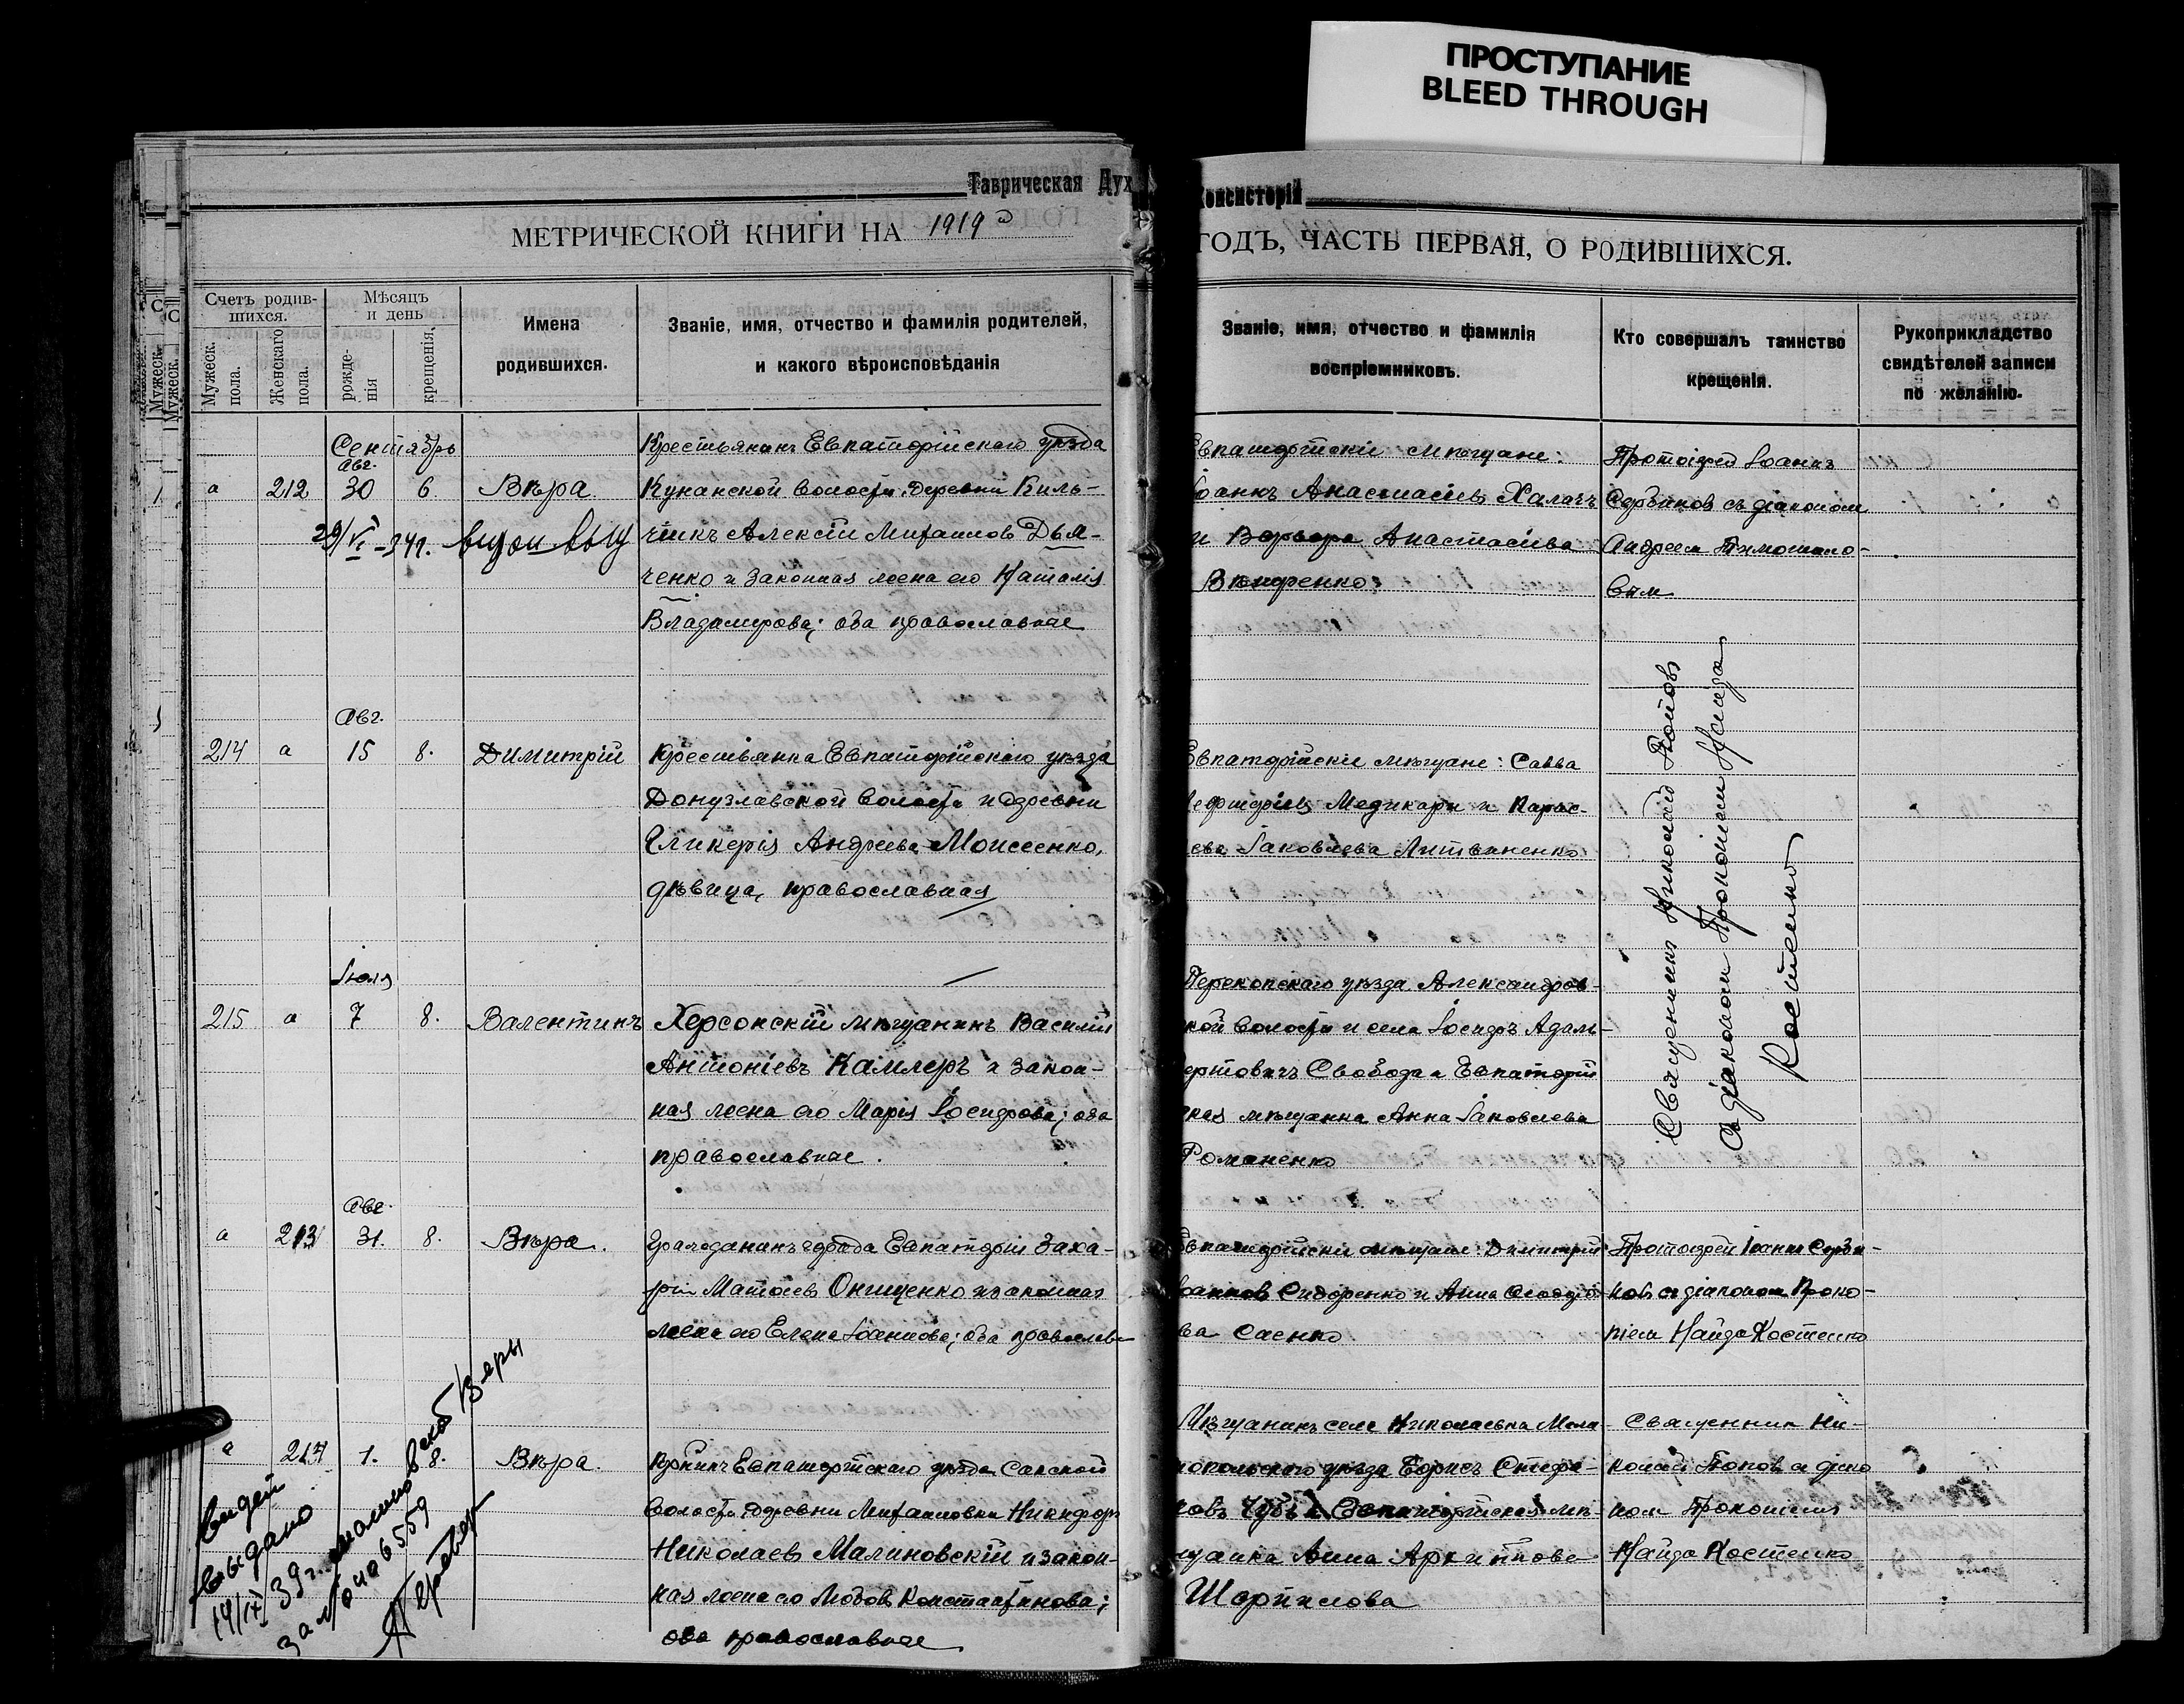 ПРОСТУПАНИЕ
BLEED THROUGH
Таврическая Дух
Консисторій
МЕТРИЧЕСКОЙ КНИГИ НА 1919
ГОДЪ, ЧАСТЬ ПЕРВАЯ, О РОДИВШИХСЯ.
Счетъ родив-
шихся.
Мужеск.
пола.
Женскаго
пола.
Мѣсяцъ
и день
рожде-
нія
крещенія.
Имена
родившихся.
Званіе, имя, отчество и фамилія родителей,
и какого вѣроисповѣданія
Званіе, имя, отчество и фамилія
воспріемниковъ.
Кто совершалъ таинство
крещенія.
Рукоприкладство
свидѣтелей записи
по желанію.
Сентябрь
Авг.
а 212 30 6. Вѣра
29/VI-341.
Крестьянинъ Евпаторійскаго уѣзда
Кунанской волости, деревни Киль-
чикъ Алексій Михаилов Дья-
ченко и законная жена его Наталія
Владимірова; оба православные
Евпаторійскіе мѣщане:
Іоаннъ Анастасіевъ Халачъ
и Варвара Анастасіева
Протоіерей Іоаннъ
Сербиновъ съ діакономъ
Андреем Тимошено-
вым
Авг.
214 а 15 8. Димитрій
Крестьянка Евпаторійскаго уѣзда
Донузлавской волости и деревни
Гликерія Андреева Моисеенко,
дѣвица, православная
Евпаторійскіе мѣщане: Савва
Медикари и Парас-
ева Іаковлева Литвиненко
Священникъ Николай Попов
съ діаконом Прокопіем Найда
Костенко
Іюля
215 а 7 8. Валентинъ
Херсонскій мѣщанинъ Василій
Антоніевъ Камлеръ и закон-
ная жена его Марія Іосифова; оба
православные.
Перекопскаго уѣзда Александров-
кой волости и села Іосифъ Адаль-
ертовичъ Свобода и Евпаторій
ская мѣщанка Анна Іаковлева
Романенко
Авг.
а 213 31. 8. Вѣра.
Гражданинъ города Евпаторіи Заха-
рія Матѳіевъ Онищенко и законная
жена его Елена Іоаннова; оба православ-
Евпаторійскіе мѣщане: Димитрій
Іоанновъ Сидоренко и Анна
ва Саенко
Протоіерей Іоаннъ Серби-
новъ съ діаконом Проко-
піем Найда Костенко
а 214 1. 8. Вѣра.
Кр-нинъ Евпаторійскаго уѣзда Сакской
волости, деревни Михайловки Никифоръ
Николаевъ Малиновскій и закон-
ная жена его Любовь Константинова;
оба православные
Мѣщанинъ села Николаевка Мели-
топольскаго уѣзда Борисъ Стефа-
новъ Чубъ и Евпаторійская мѣ-
щанка Анна Архиппова
Шарпилова
Священник Ни-
колай Попов съ діако
ном Прокопіем
Найда Костенко
выдано
14/IX 39г. Малиновской Веры